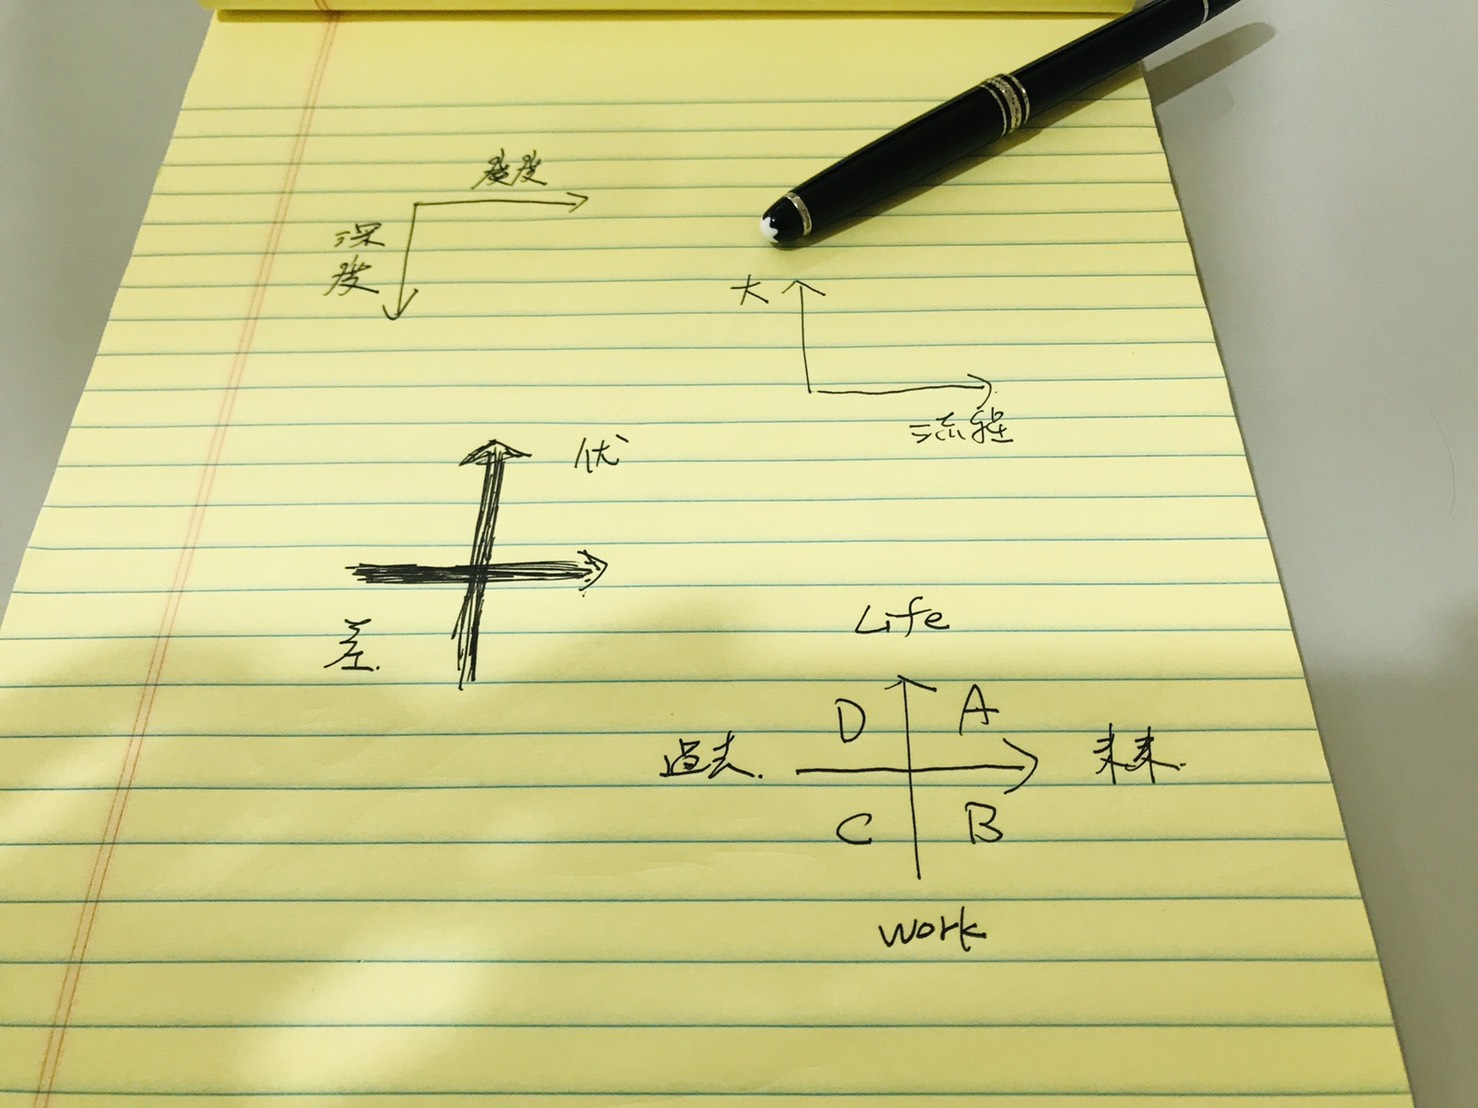 度
深
度
大
流程
优
差.
Life
D A
過去. 未来.
C B
work